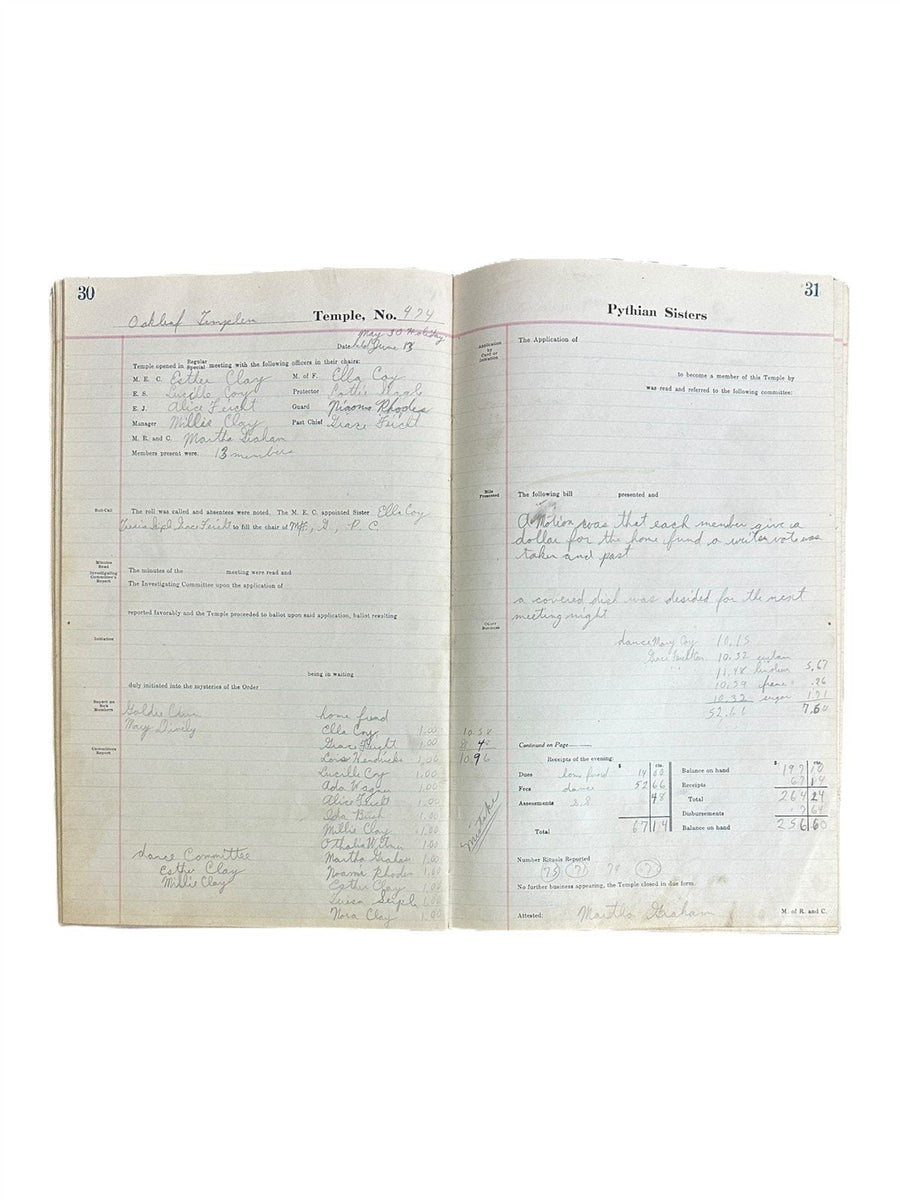 30
Oakleaf Temple Temple, No. 474
May 30 Holiday
Date June 13
Temple opened in Regular Special meeting with the following officers in their chairs:
M. E. C. Esther Clay M. of F. Ella Coy
E. S. Lucille Coy Protector
E. J. Alice Feicht Guard Niaoma Rhodes
Manager Millie Clay Past Chief Grace Feicht
M. R. and C. Martha Graham
Members present were. 13 members
Roll-Call
The roll was called and absentees were noted. The M. E. C. appointed Sister Ella Coy
Grace Feicht to fill the chair of M.F., G, P. C.
Minutes Read
The minutes of the meeting were read and
Investigating Committee's Report
The Investigating Committee upon the application of
reported favorably and the Temple proceeded to ballot upon said application, ballot resulting
Initiation
being in waiting
duly initiated into the mysteries of the Order
Report on Sick Members
Goldie home fund
Mary Ella Coy 1.00
Grace Feight 1.00
Committees Report
Lois Hendricks 1.00
Lucille Coy 1.00
Ada Wagner 1.00
Alice Feicht 1.00
Ida Bush 1.00
Millie Clay 1.00
Othalia Witmer 1.00
dance Committee Martha Graham 1.00
Esther Clay Noama Rhodes 1.00
Millie Clay Esther Clay 1.00
Seiple 1.00
Nora Clay 1.00
31
Pythian Sisters
Application by Card or Initiation
The Application of
to become a member of this Temple by
was read and referred to the following committee:
Bills Presented
The following bill presented and
A Motion was that each member give a
dollar for the home fund a writen vote was
taken and past
a covered dish was desided for the next
meeting night
Other Business
dance Mary Coy 10.15
10.32
11.48 5.67
10.39 .26
10.32 sugar 1.71
52.66 7.64
10.58
10.96
mistake
Continued on Page
Receipts of the evening.
$ cts. $ cts.
Dues home fund 14 00 Balance on hand 197 10
Fees dance 52 66 Receipts 67 14
Assessments S.S. 48 Total 264 24
Disbursements 7 64
Total 67 14 Balance on hand 256 60
Number Rituals Reported
75 71 78 71
No further business appearing, the Temple closed in due form.
Attested: Martha Graham M. of R. and C.